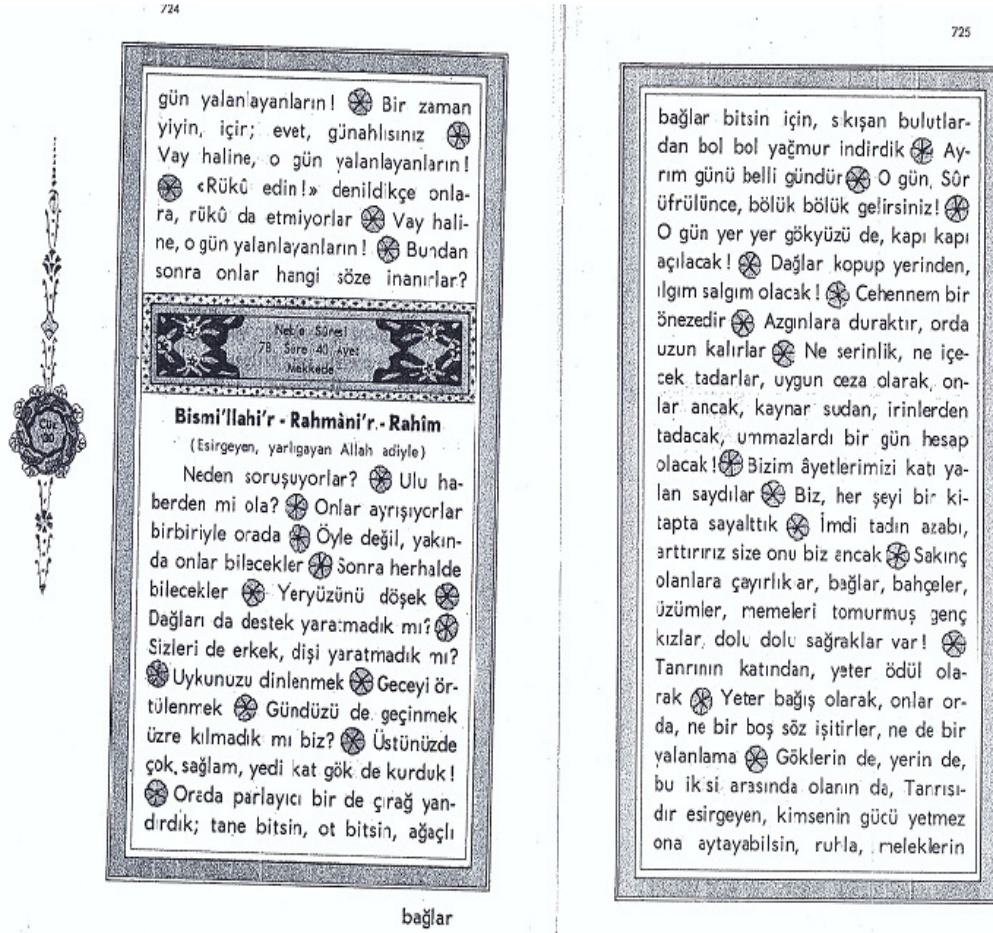 724
gün yalanlayanların! Bir zaman
yiyin, için; evet, günahlısınız
Vay haline, o gün yalanlayanların!
«Rükû edin!» denildikçe onla-
ra, rükû da etmiyorlar Vay hali-
ne, o gün yalanlayanların! Bundan
sonra onlar hangi söze inanırlar?
Neb'e Sûresi
78. Sure 40 Ayet
Mekkede
Cüz
30
Bismi'llahi'r - Rahmâni'r - Rahîm
(Esirgeyen, yarlıgayan Allah adiyle)
Neden soruşuyorlar? Ulu ha-
berden mi ola? Onlar ayrışıyorlar
birbiriyle orada Öyle değil, yakın-
da onlar bilecekler Sonra herhalde
bilecekler Yeryüzünü döşek
Dağları da destek yaratmadık mı?
Sizleri de erkek, dişi yaratmadık mı?
Uykunuzu dinlenmek Geceyi ör-
tülenmek Gündüzü de geçinmek
üzre kılmadık mı biz? Üstünüzde
çok sağlam, yedi kat gök de kurduk!
Orada parlayıcı bir de çırağ yan-
dırdık; tane bitsin, ot bitsin, ağaçlı
bağlar
725
bağlar bitsin için, sıkışan bulutlar-
dan bol bol yağmur indirdik Ay-
rım günü belli gündür O gün, Sûr
üfrülünce, bölük bölük gelirsiniz!
O gün yer yer gökyüzü de, kapı kapı
açılacak! Dağlar kopup yerinden,
ılgım salgım olacak! Cehennem bir
önezedir Azgınlara duraktır, orda
uzun kalırlar Ne serinlik, ne içe-
cek tadarlar, uygun ceza olarak, on-
lar ancak, kaynar sudan, irinlerden
tadacak, ummazlardı bir gün hesap
olacak! Bizim âyetlerimizi katı ya-
lan saydılar Biz, her şeyi bir ki-
tapta sayalttık İmdi tadın azabı,
arttırırız size onu biz ancak Sakınç
olanlara çayırlıklar, bağlar, bahçeler,
üzümler, memeleri tomurmuş genç
kızlar, dolu dolu sağraklar var!
Tanrının katından, yeter ödül ola-
rak Yeter bağış olarak, onlar or-
da, ne bir boş söz işitirler, ne de bir
yalanlama Göklerin de, yerin de,
bu ikisi arasında olanın da, Tanrısı-
dır esirgeyen, kimsenin gücü yetmez
ona aytayabilsin, ruhla, meleklerin